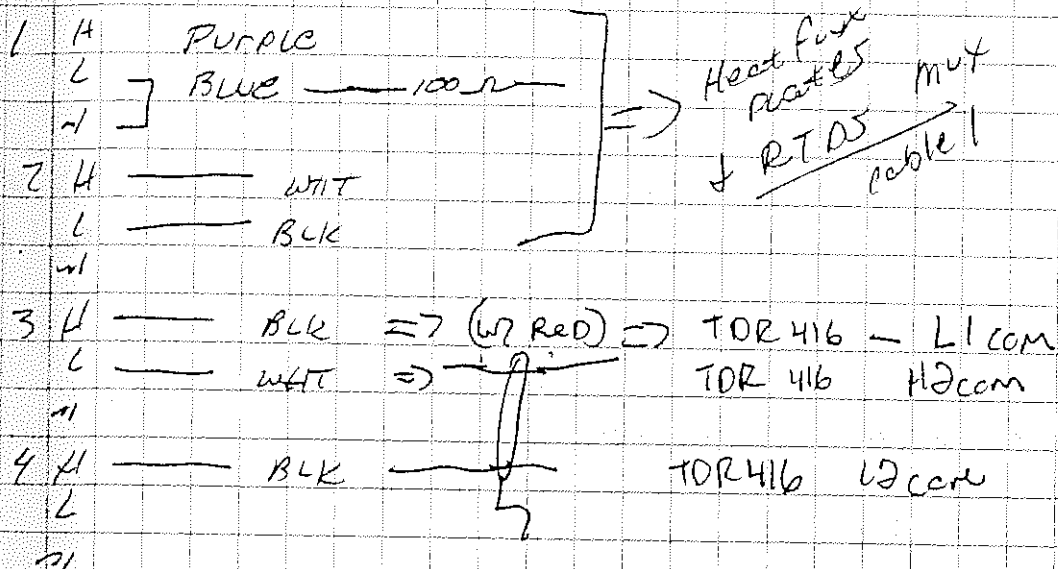 1 H Purple
L Blue 100Ω
Heat flux
plates
+ RTDS mux
cable 1
2 H WHT
L BLK
3 H BLK => (w/ ReD) => TDR 416 - L1 com
L WHT => TDR 416 H2com
4 H BLK TDR416 L2 com
L